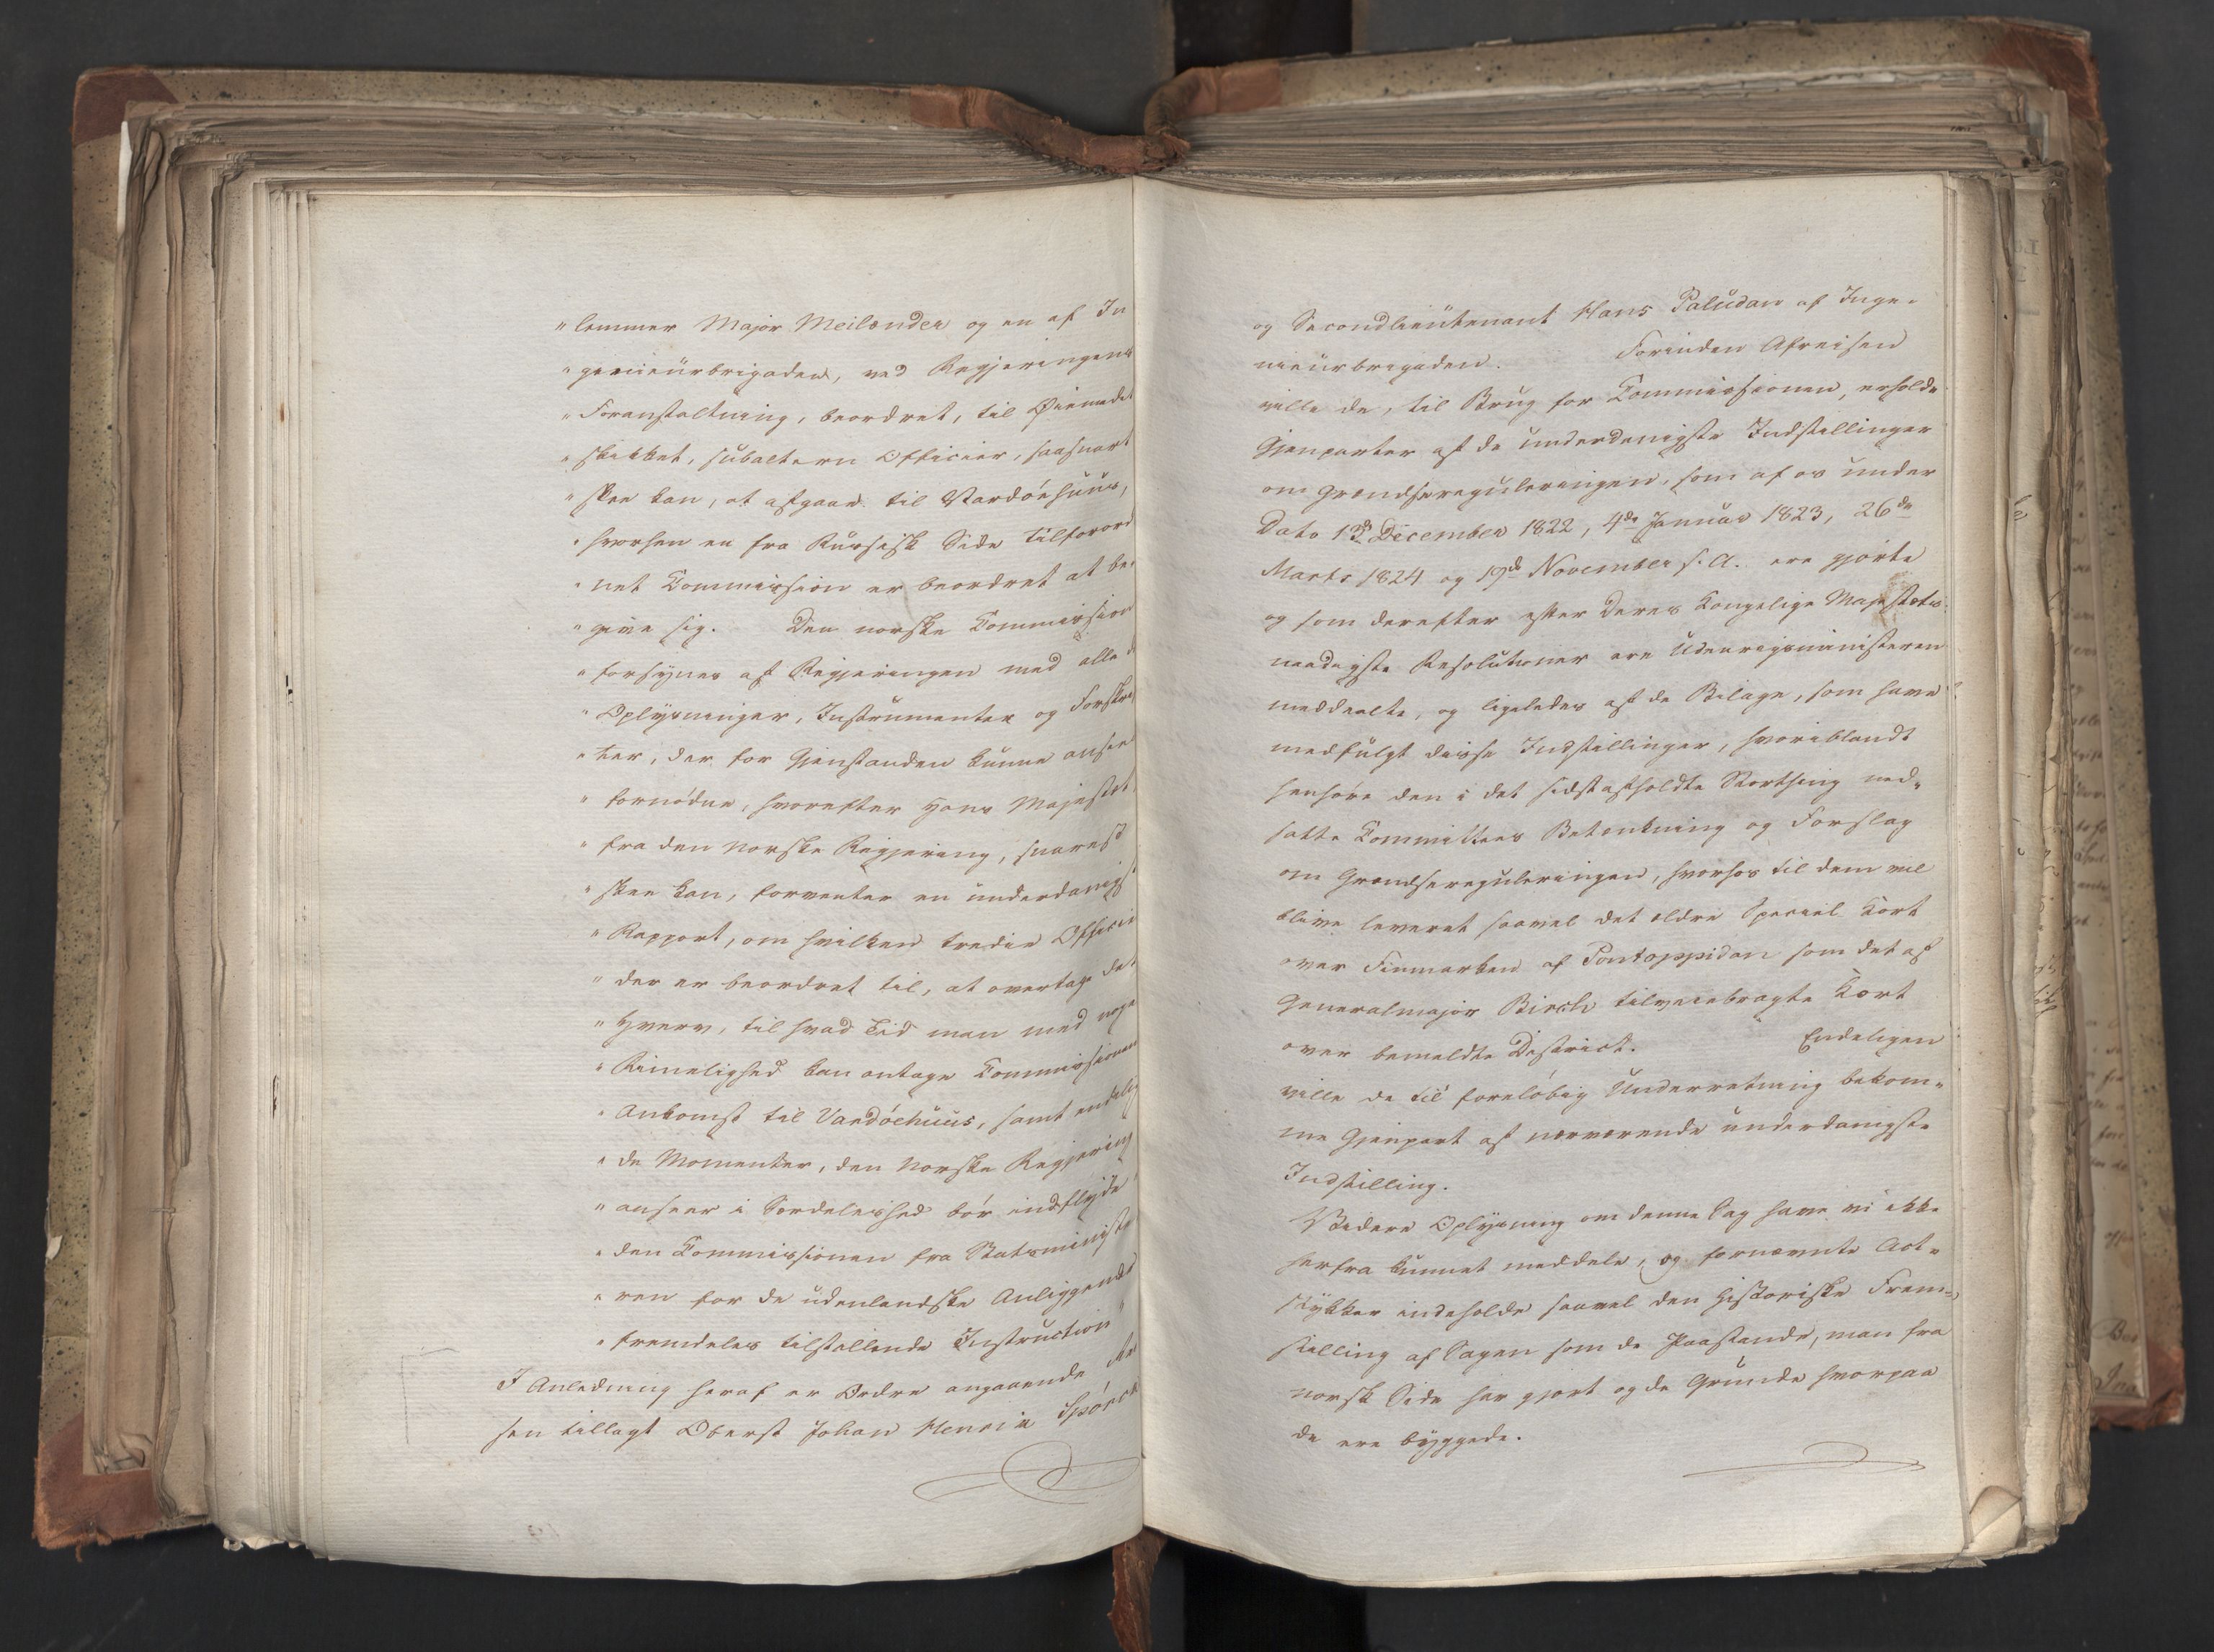 "lemmer Major Meilænder og en af In
"genieurbrigaden, ved Regjeringens
"Foranstaltning, beordret, til Øiemedet
"skikket, subaltern Officier, saasnart
"skee kan, at afgaae til Vardöehuus,
"hvorhen en fra Russisk Side tilforord
"net Commission er beordret at be-
"give sig. Den norske Commission
"forsynes af Regjeringen med alle d
"Oplysninger, Instrumenter og Forskrif
"ter, der for Gjenstanden kunne ansees
"fornödne, hvorefter Hans Majestæt,
"fra den Norske Regjering, snarest
"skee kan, forventer en underdanigst
"Rapport, om hvilken tredie Officie
"der er beordret til, at overtage det
"Hverv, til hvad Tid man med noge
"Rimelighed kan antage Commissionens
"Ankomst til Vardöehuus, samt endelig
"de Momenter, den Norske Regjering
"anseer i Særdeleshed bör indflyde i
"den Commissionen fra Statsministe
"ren for de udenlandske Anliggender
"fremdeles tilstillende Instruction"
I Anledning heraf er Ordre angaaende Rei
sen tillagt Oberst Johan Henrik Spörck
og Secondlieutenant Hans Paludan af Inge-
nieurbrigaden. Forinden Afreisen
ville de, til Brug for Commissionen, erholde
Gjenparter af de underdanigste Indstillinger
om Grændsereguleringen, som af os under
Dato 13de December 1822, 4de Januar 1823, 26de
Marts 1824 og 19de November s. A. ere gjorte
og som derefter efter Deres Kongelige Majestæts
naadigste Resolutioner ere Udenrigsministeren
meddeelte, og ligeledes af de Bilage, som have
medfulgt disse Indstillinger, hvoriblandt
henhöre den i det sidst afholdte Storthing ned-
satte Committees Betænkning og Forslag
om Grændsereguleringen, hvorhos til dem vil
blive leveret saavel det ældre Special Kort
over Finmarken af Pontoppidan som det af
Generalmajor Birch tilveiebragte Kort
over bemeldte District. Endeligen
ville de til foreløbig Underretning bekom-
me Gjenpart af nærværende underdanigste
Indstilling.
Videre Oplysning om denne Sag have vi ikke
herfra kunnet meddele, og fornævnte Act-
stykker indeholde saavel den historiske Frem-
stilling af Sagen som de Paastande, man fra
norsk Side har gjort og de Grunde hvorpaa
de ere byggede.